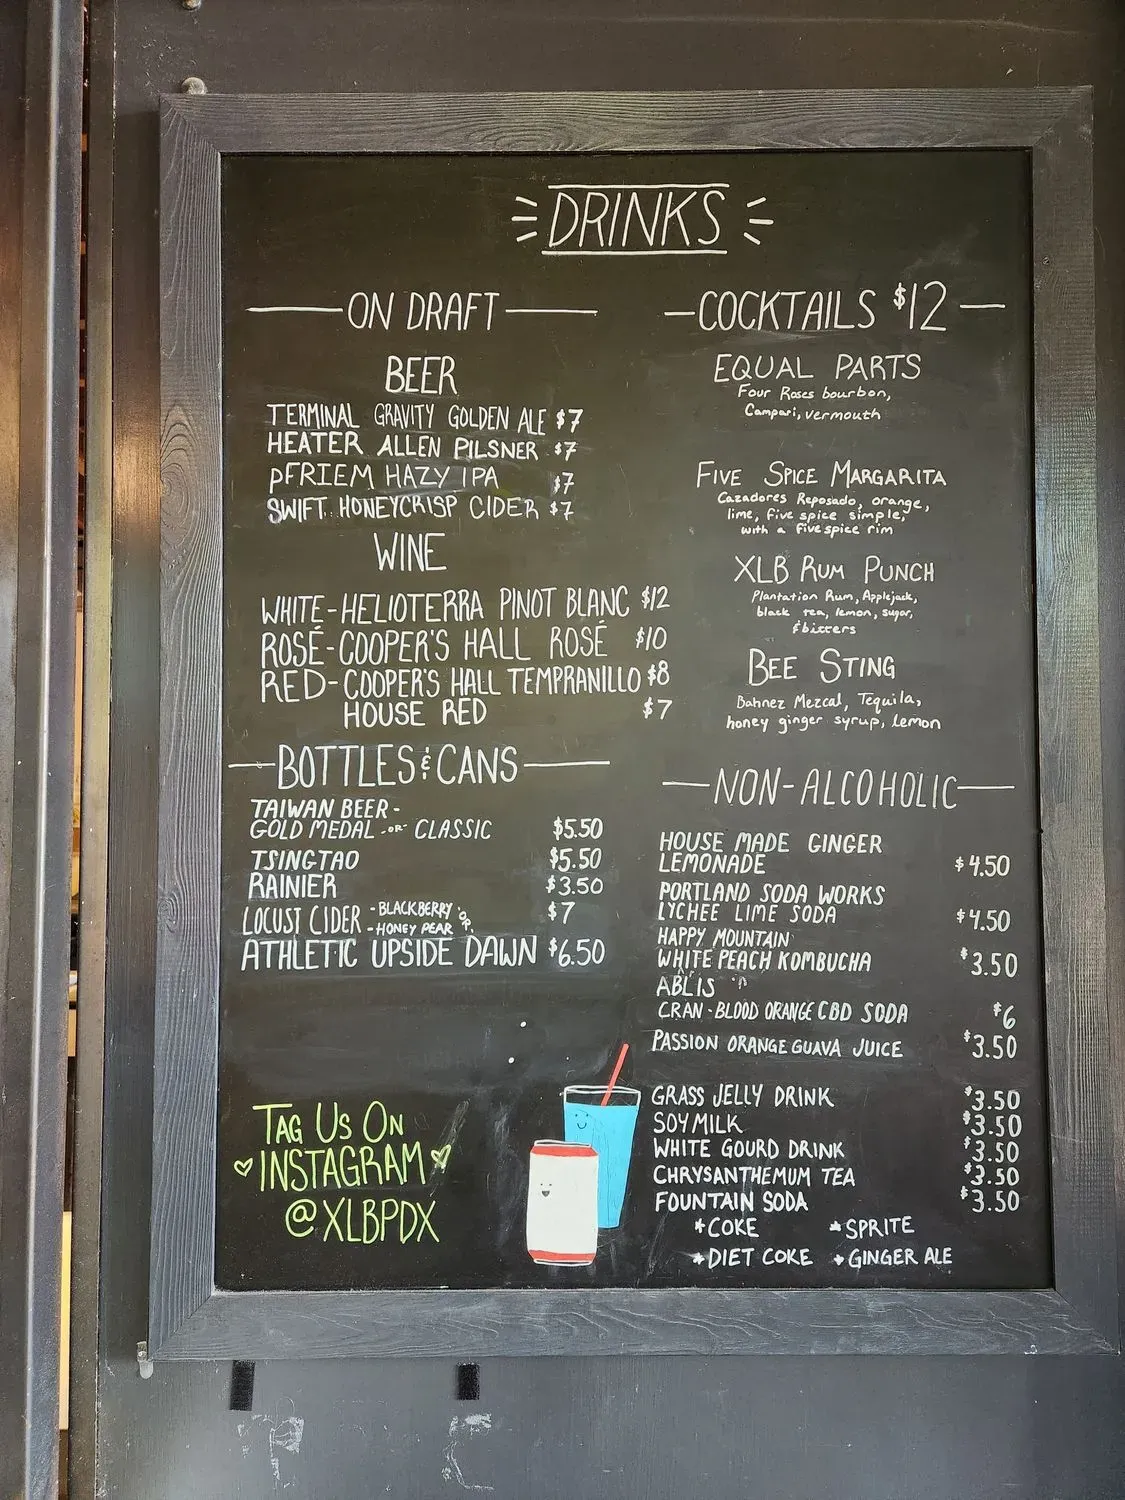 DRINKS
ON DRAFT
BEER
TERMINAL GRAVITY GOLDEN ALE $7
HEATER ALLEN PILSNER $7
pFRIEM HAZY IPA $7
SWIFT HONEYCRISP CIDER $7
WINE
WHITE-HELIOTERRA PINOT BLANC $12
ROSÉ-COOPER'S HALL ROSÉ $10
RED-COOPER'S HALL TEMPRANILLO $8
HOUSE RED $7
BOTTLES & CANS
TAIWAN BEER-
GOLD MEDAL -OR- CLASSIC $5.50
TSINGTAO $5.50
RAINIER $3.50
LOCUST CIDER -BLACKBERRY OR $7
-HONEY PEAR
ATHLETIC UPSIDE DAWN $6.50
TAG US ON
INSTAGRAM
@XLBPDX
COCKTAILS $12
EQUAL PARTS
Four Roses bourbon,
Campari, vermouth
FIVE SPICE MARGARITA
Cazadores Reposado, orange,
lime, five spice simple,
with a five spice rim
XLB RUM PUNCH
Plantation Rum, Applejack,
black tea, lemon, sugar,
& bitters
BEE STING
Bahnez Mezcal, Tequila,
honey ginger syrup, lemon
NON-ALCOHOLIC
HOUSE MADE GINGER
LEMONADE $4.50
PORTLAND SODA WORKS
LYCHEE LIME SODA $4.50
HAPPY MOUNTAIN
WHITE PEACH KOMBUCHA $3.50
ABLIS
CRAN-BLOOD ORANGE CBD SODA $6
PASSION ORANGE GUAVA JUICE $3.50
GRASS JELLY DRINK $3.50
SOY MILK $3.50
WHITE GOURD DRINK $3.50
CHRYSANTHEMUM TEA $3.50
FOUNTAIN SODA $3.50
*COKE *SPRITE
*DIET COKE *GINGER ALE